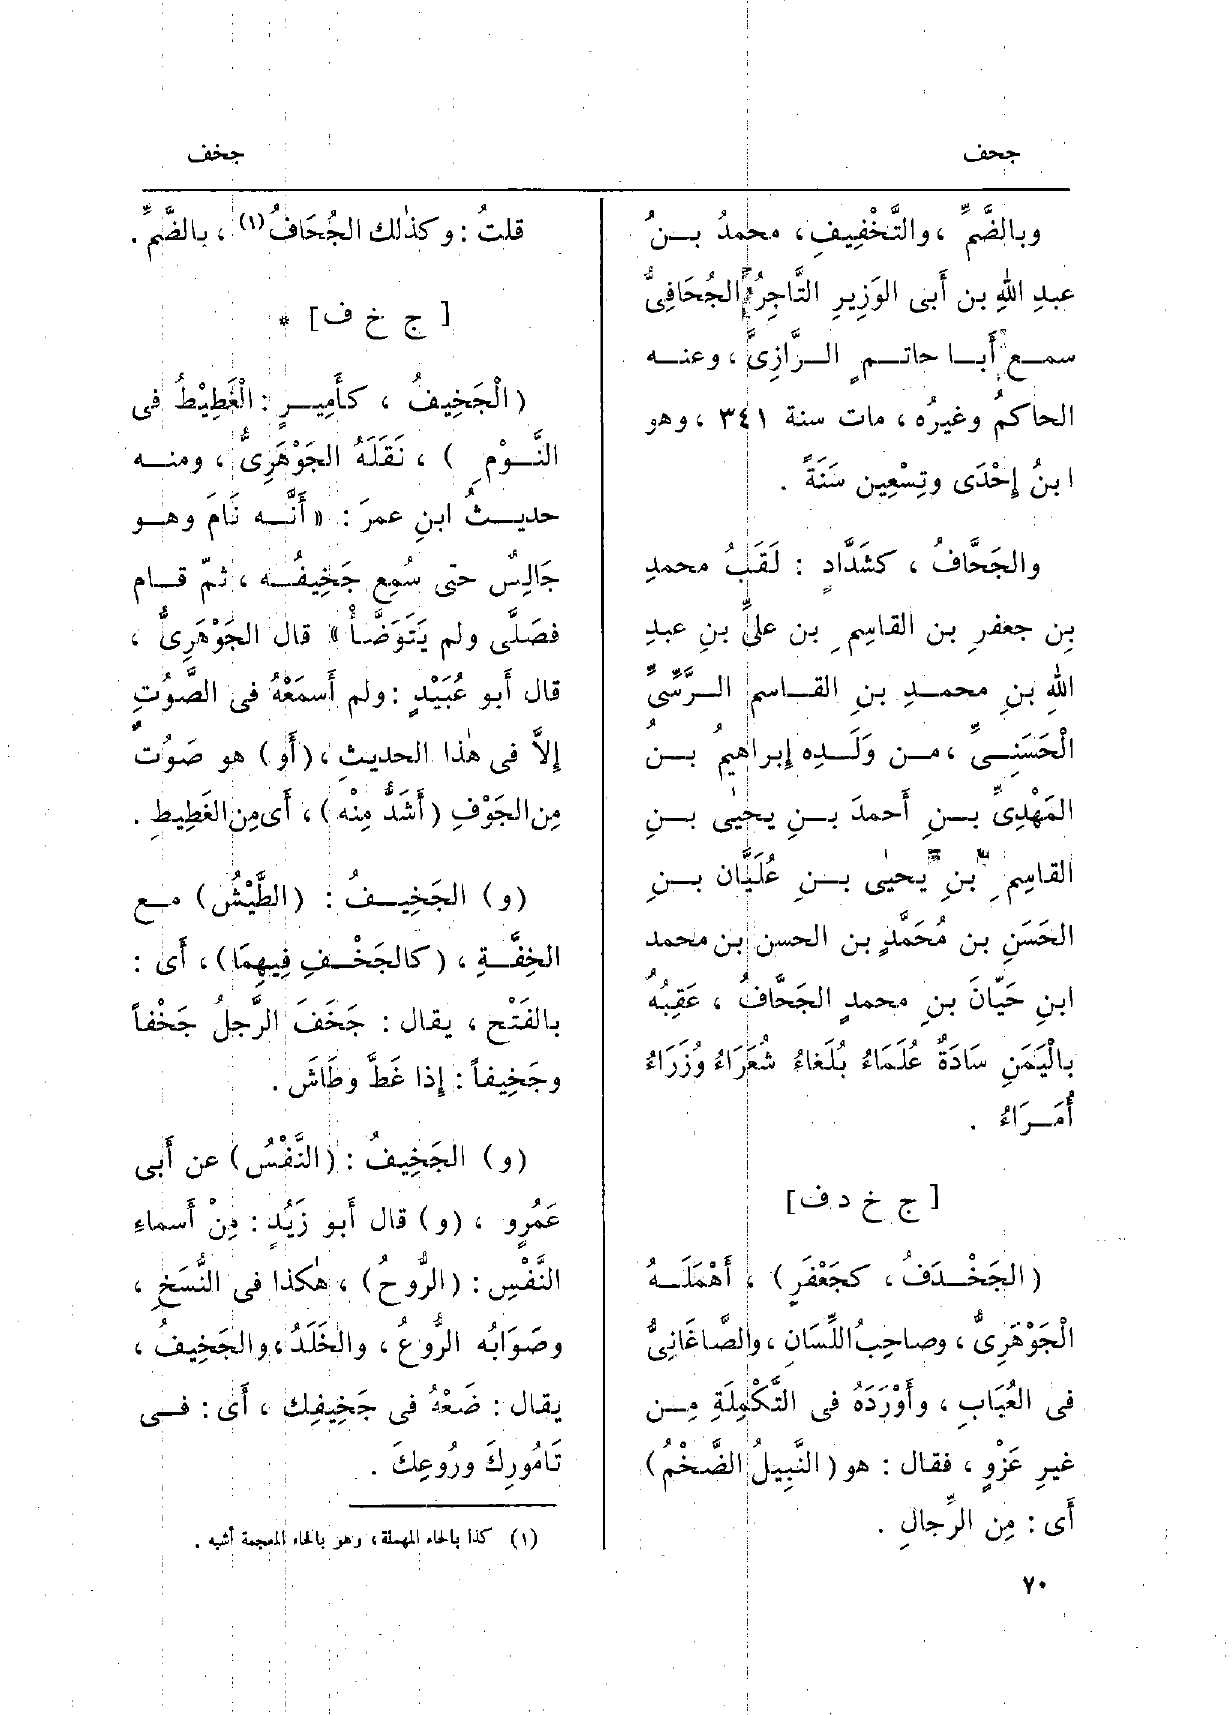 جحف
جخف
وبالضَّمِّ ، والتَّخْفِيفِ، محمدُ بـنُ
عبدِ اللهِ بن أَبى الوَزِيرِ التَّاجِرُ الجُحَافِىُّ
سمـع أَبـا حاتـمٍ الـرَّازِىَّ ، وعنـه
الحاكمُ وغيرُه ، مات سنة ٣٤١ ، وهو
ابنُ إِحْدَى وتِسْعِين سَنَةً .
والجَحَّافُ ، كشَدَّادٍ : لَقَبُ محمدِ
بن جعفرِ بن القاسِمِ بن علىِّ بنِ عبدِ
اللهِ بنِ محمـدِ بنِ القـاسم الـرَّسِّىِّ
الْحَسَنِـىِّ ، مـن وَلَـدِه إِبراهيمُ بـنُ
المَهْدِىِّ بـنِ أَحمدَ بـنِ يحيٰى بـنِ
القاسِمِ بنِ يَحيٰى بـنِ عُلَيَّان بـنِ
الحَسَنِ بن مُحَمَّدِ بن الحسن بن محمد
ابنِ حَيَّانَ بنِ محمدٍ الجَحَّافُ ، عَقِبُهُ
بالْيَمَنِ سَادَةٌ عُلَمَاءُ بُلَغاءُ شُعَرَاءُ وُزَرَاءُ
أُمَـرَاءُ .
[ ج خ د ف]
(الجَخْـدَفُ ، كجَعْفَرٍ) ، أَهْمَلَـهُ
الْجَوْهَرِىُّ ، وصاحِبُ اللِّسَانِ ، والصَّاغَانِىُّ
فى العُبَابِ ، وأَوْرَدَهُ فى التَّكْمِلَةِ مِـن
غيرِ عَزْوٍ ، فقال : هو (النَّبِيلُ الضَّخْمُ)
أَى : مِن الرِّجالِ .
قلتُ : وكذٰلك الجُحَافُ(١) ، بالضَّمِّ .
[ ج خ ف] *
(الْجَخِيفُ ، كأَمِيـرٍ : الْغَطِيْطُ فى
النَّـوْمِ ) ، نَقَلَهُ الجَوْهَرِىُّ ، ومنـه
حديـثُ ابنِ عمرَ : « أَنَّـه نَامَ وهـو
جَالِسٌ حتى سُمِع جَخِيفُـه ، ثمّ قـام
فصَلَّى ولم يَتَوَضَّأْ » قال الجَوْهَرِىُّ ،
قال أَبو عُبَيْدٍ : ولم أَسمَعْهُ فى الصَّوْتِ
إِلاَّ فى هٰذا الحديثِ ، (أَو) هو صَوْتٌ
مِن الجَوْفِ (أَشَدُّ مِنْه) ، أَى مِن الغَطِيطِ .
(و) الجَخِيـفُ : (الطَّيْشُ) مـع
الخِفَّـةِ ، (كالجَخْـفِ فِيهِمَا) ، أَى :
بالفَتْح ، يقال : جَخَفَ الرَّجلُ جَخْفاً
وجَخِيفاً : إِذا غَطَّ وطَاشَ .
(و) الجَخِيفُ : (النَّفْسُ) عن أَبى
عَمْرٍو ، (و) قال أَبو زَيْدٍ : مِنْ أَسماءِ
النَّفْسِ : (الرُّوحُ) ، هٰكذا فى النُّسَخِ ،
وصَوَابُه الرُّوعُ ، والخَلَدُ ، والجَخِيفُ ،
يقال : ضَعْهُ فى جَخِيفِك ، أَى : فـى
تَامُورِكَ ورُوعِكَ .
(١) كذا بالحاء المهملة ، وهو بالخاء المعجمة أشبه .
٧٠